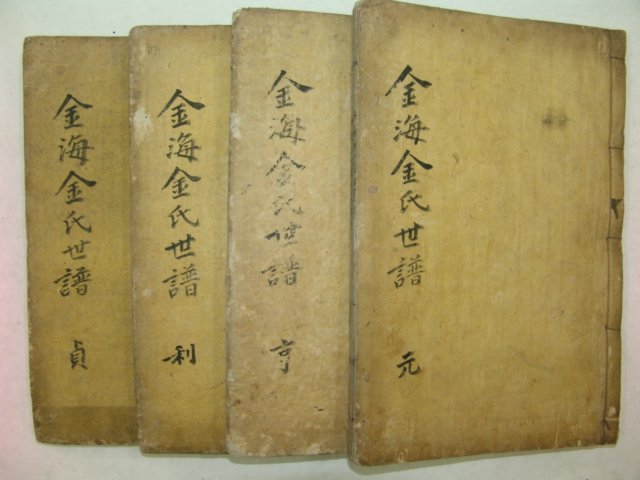 金海金氏世譜 元
金海金氏世譜 亨
金海金氏世譜 利
金海金氏世譜 貞